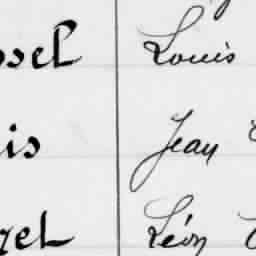 ssel Louis
is Jean
zel Léon